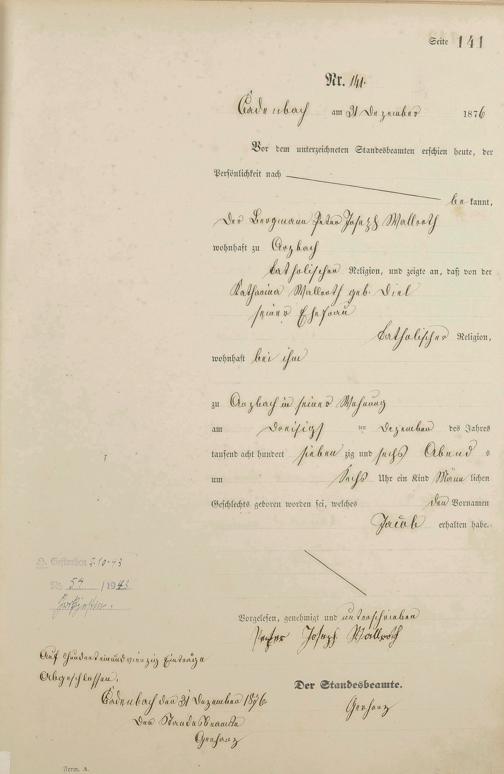 Seite 141
Nr. 141.
Cadenbach am 31 Dezember 1876
Vor dem unterzeichneten Standesbeamten erschien heute, der
Persönlichkeit nach
be kannt,
Der Bergmann Peter Joseph Wallroth
wohnhaft zu Arzbach
katholischer Religion, und zeigte an, daß von der
Katharina Wallroth geb. Diel
seiner Ehefrau
katholischer Religion,
wohnhaft bei ihm
zu Arzbach in seiner Wohnung
am dreisigst ten Dezember des Jahres
tausend acht hundert sieben zig und sechs Abend s
um Sechs Uhr ein Kind Männ lichen
Geschlechts geboren worden sei, welches den Vornamen
Jacob erhalten habe.
Gestorben 2.10.43
No 54 /1943
Vorgelesen, genehmigt und unterschrieben
Peter Joseph Wallroth
Auf Hunderteinundvierzig Einträge
Abgeschlossen.
Der Standesbeamte.
Cadenbach den 31 Dezember 1876
Gerharz
Der Standesbeamte
Gerharz
Form. A.